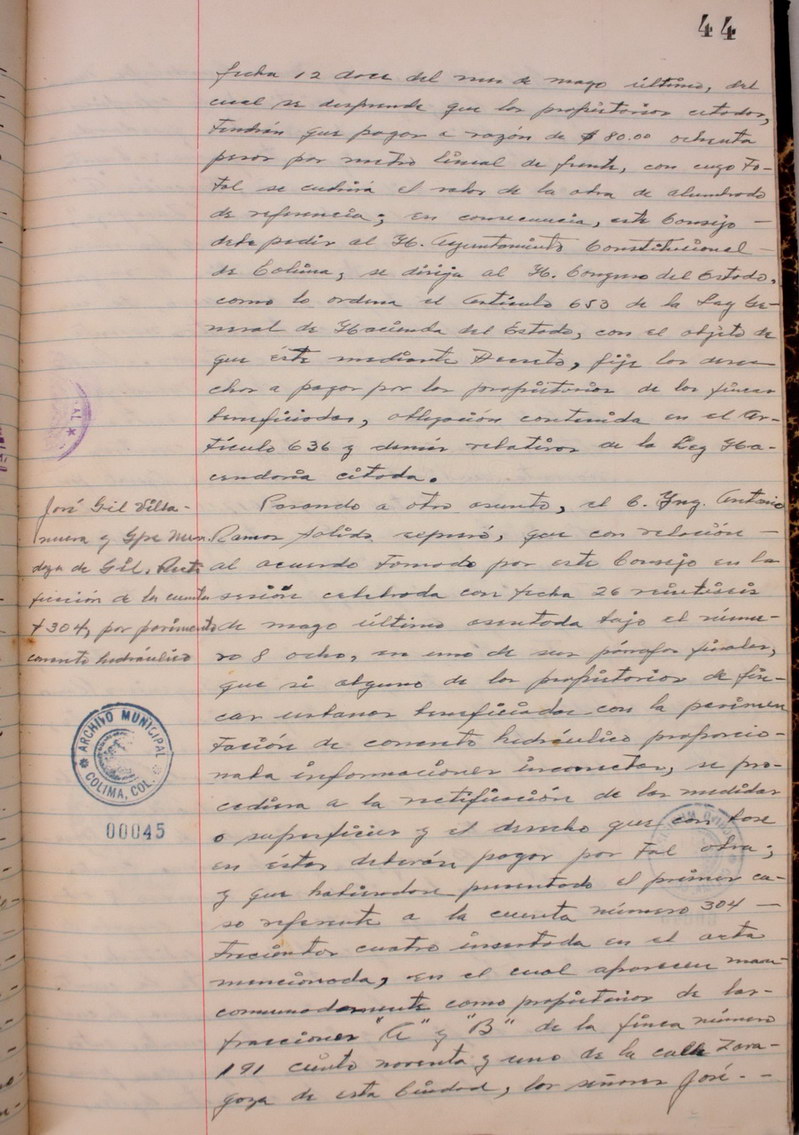 44
fecha 12 doce del mes de mayo último, del
cual se desprende que los propietarios citados,
tendrán que pagar a razón de $80.00 ochenta
pesos por metro lineal de frente, con cuyo to-
tal se cubrirá el valor de la obra de alumbrado
de referencia; en consecuencia, este Consejo -
debe pedir al H. Ayuntamiento Constitucional -
de Colima, se dirija al H. Congreso del Estado,
como lo ordena el Artículo 653 de la Ley Ge-
neral de Hacienda del Estado, con el objeto de
que éste mediante Decreto, fije los dere-
chos a pagar por los propietarios de las fincas
beneficiadas, obligación contenida en el Ar-
tículo 636 y demás relativos de la Ley Ha-
cendaria citada.
José Gil Villa-
nueva y Gpe Men
doza de Gil. Recti
ficación de la cuenta
#304, por pavimento
cemento hidráulico
Pasando a otro asunto, el C. Ing. Antonio
Ramos Salido expresó, que con relación -
al acuerdo tomado por este Consejo en la
sesión celebrada con fecha 26 veintiseis
de mayo último asentada bajo el núme-
ro 8 ocho, en uno de sus párrafos finales,
que si alguno de los propietarios de fin-
cas urbanas beneficiadas con la pavimen
tación de cemento hidráulico proporcio-
naba informaciones incorrectas, se pro-
cediera a la rectificación de las medidas
o superficies y el derecho que con base
en éstas deberán pagar por tal obra;
y que habiéndose presentado el primer ca-
so referente a la cuenta número 304 -
trecientos cuatro insertada en el acta
mencionada, en el cual aparecen man-
comunadamente como propietarios de las-
fracciones "A" y "B" de la finca número
191 ciento noventa y uno de la calle Zara-
goza de esta Ciudad, los señores José - -
ARCHIVO MUNICIPAL
COLIMA, COL.
00045